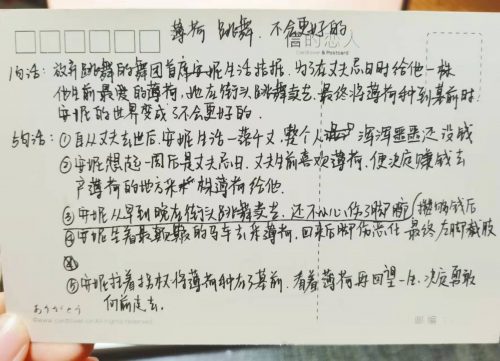 薄荷 跳舞 不会更好的
信的恋人
Cardlover & Postcard
1句话：放弃跳舞的舞团首席安妮生活拮据，为了在丈夫忌日时给他一株
他生前最爱的薄荷，她在街头跳舞卖艺，最终将薄荷种到墓前时
安妮的世界变成了不会更好的．
5句话：①自从丈夫去世后，安妮生活一落千丈，整个人浑浑噩噩还没钱
②安妮想起一周后是丈夫忌日，丈夫生前喜欢薄荷，便决定赚钱去
产薄荷的地方采一株薄荷给他．
③安妮从早到晚在街头跳舞卖艺，还不小心伤了脚腕，攒够钱后
④安妮坐着最颠簸的马车去采薄荷，回来后脚伤恶化最终左脚截肢
⑤安妮拄着拐杖将薄荷种在了墓前，看着薄荷再回望一生，决定勇敢
向前走去．
ありがとう
©www.cardlover.com All rights reserved.
邮 编